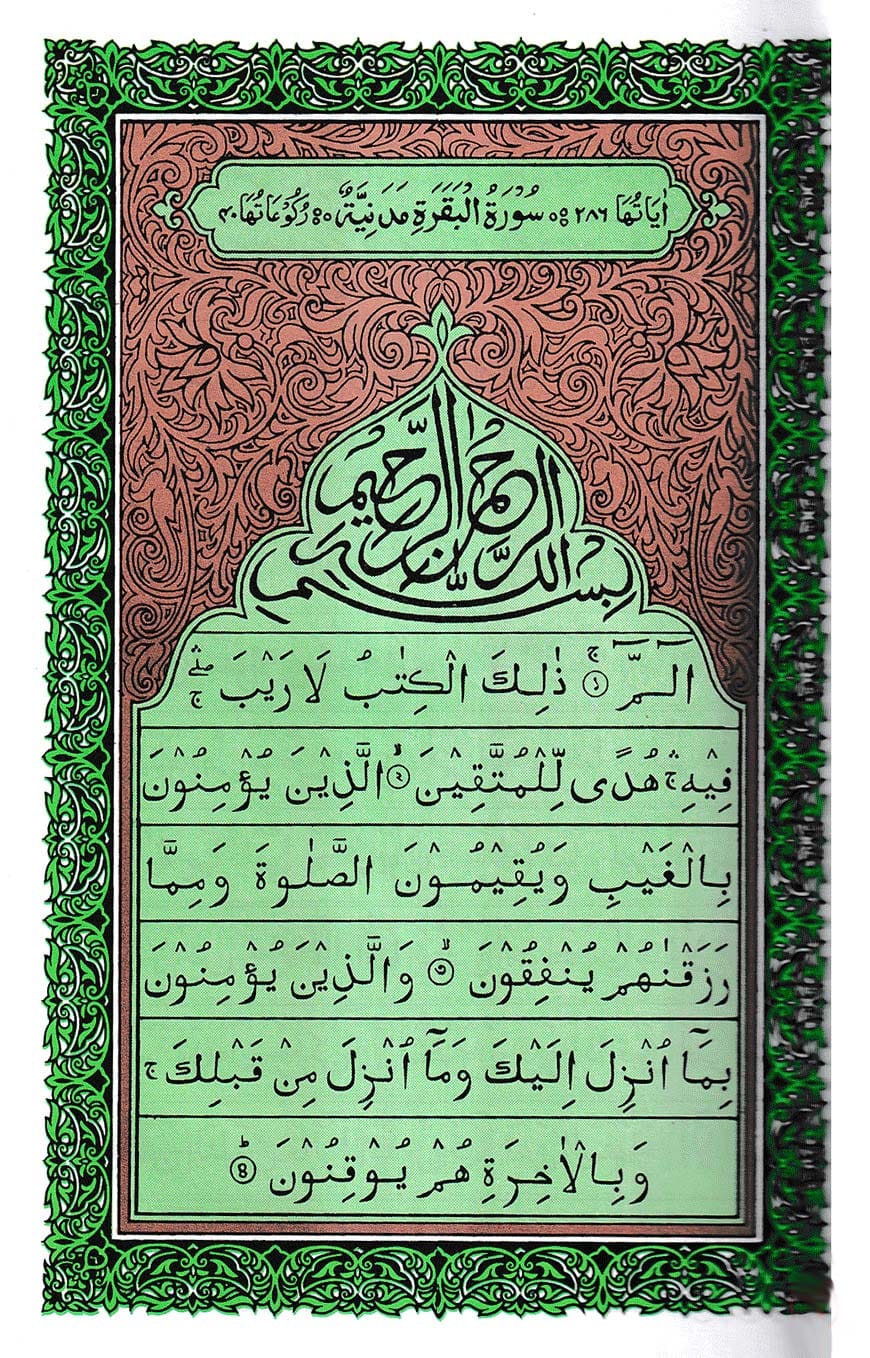 اٰيَاتُهَا ٢٨٦ سُوْرَةُ الْبَقَرَةِ مَدَنِيَّةٌ رُكُوْعَاتُهَا ٤٠
بِسْمِ اللّٰهِ الرَّحْمٰنِ الرَّحِيْمِ
الٓـمّٓ ۚ ﴿١﴾ ذٰلِكَ الْكِتٰبُ لَا رَيْبَ ۛۖۚ
فِيْهِ ۛۚ هُدًى لِّلْمُتَّقِيْنَ ۙ﴿٢﴾ الَّذِيْنَ يُؤْمِنُوْنَ
بِالْغَيْبِ وَيُقِيْمُوْنَ الصَّلٰوةَ وَمِمَّا
رَزَقْنٰهُمْ يُنْفِقُوْنَ ۙ﴿٣﴾ وَالَّذِيْنَ يُؤْمِنُوْنَ
بِمَآ اُنْزِلَ اِلَيْكَ وَمَآ اُنْزِلَ مِنْ قَبْلِكَ ۚ
وَبِالْاٰخِرَةِ هُمْ يُوْقِنُوْنَ ؕ﴿٤﴾